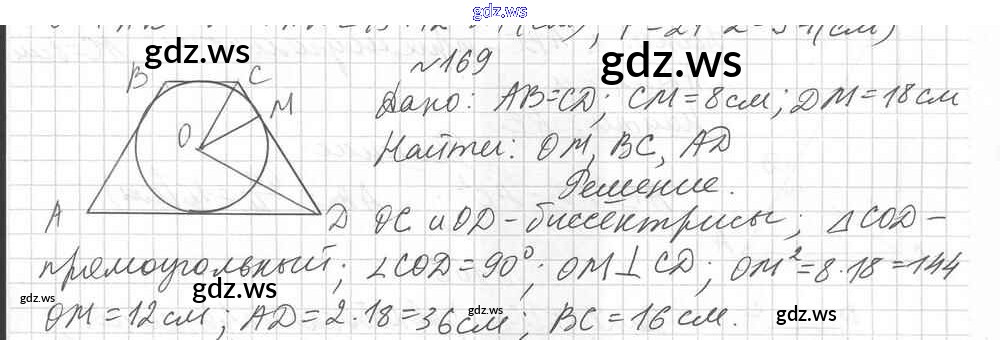 gdz.ws
gdz.ws
gdz.ws
№169
B C M O A D
Дано: AB=CD; CM=8см; DM=18см
Найти: OM, BC, AD
Решение.
OC и OD - биссектрисы; △COD -
gdz.ws
прямоугольный; ∠COD=90°; OM⊥CD; OM²=8·18=144
gdz.ws
gdz.ws
OM=12см; AD=2·18=36см; BC=16см.
gdz.ws
gdz.ws